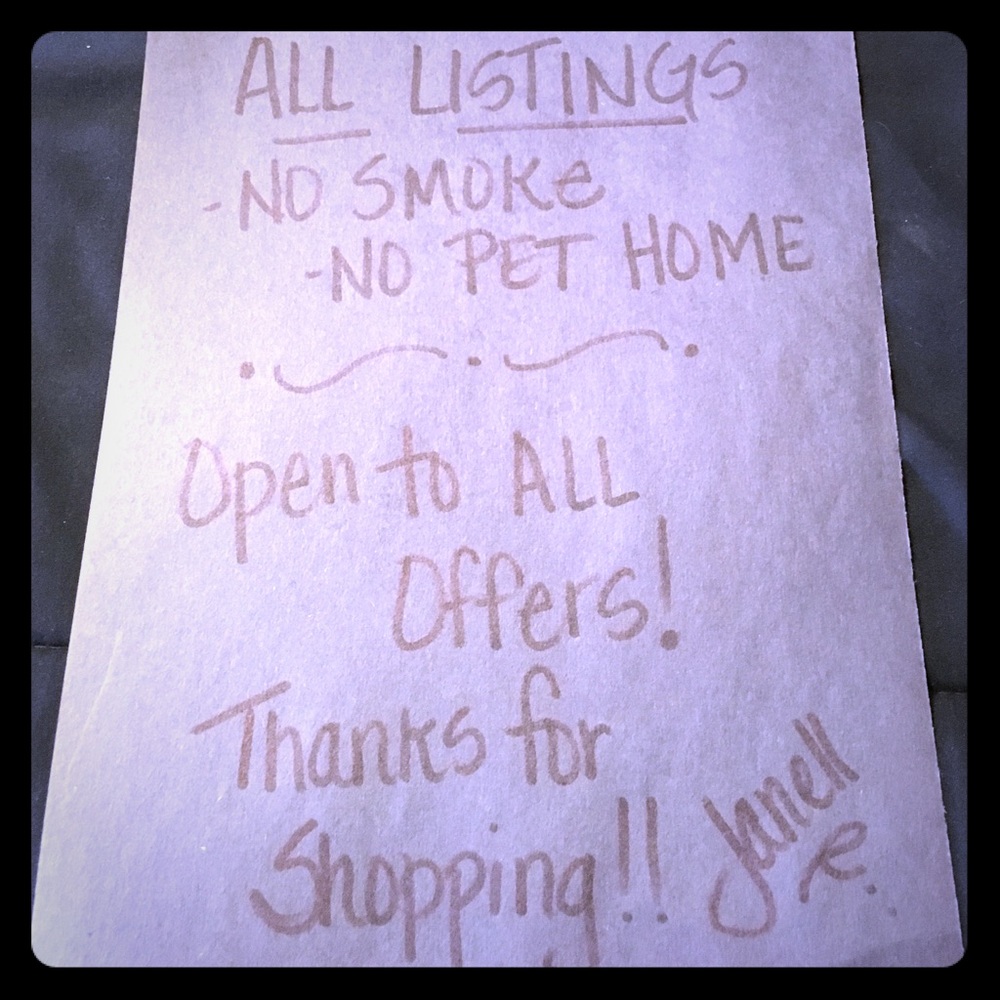 ALL LISTINGS
-NO SMOKe
-NO PET HOME
Open to ALL
Offers!
Thanks for
Shopping!!
Janell
R.